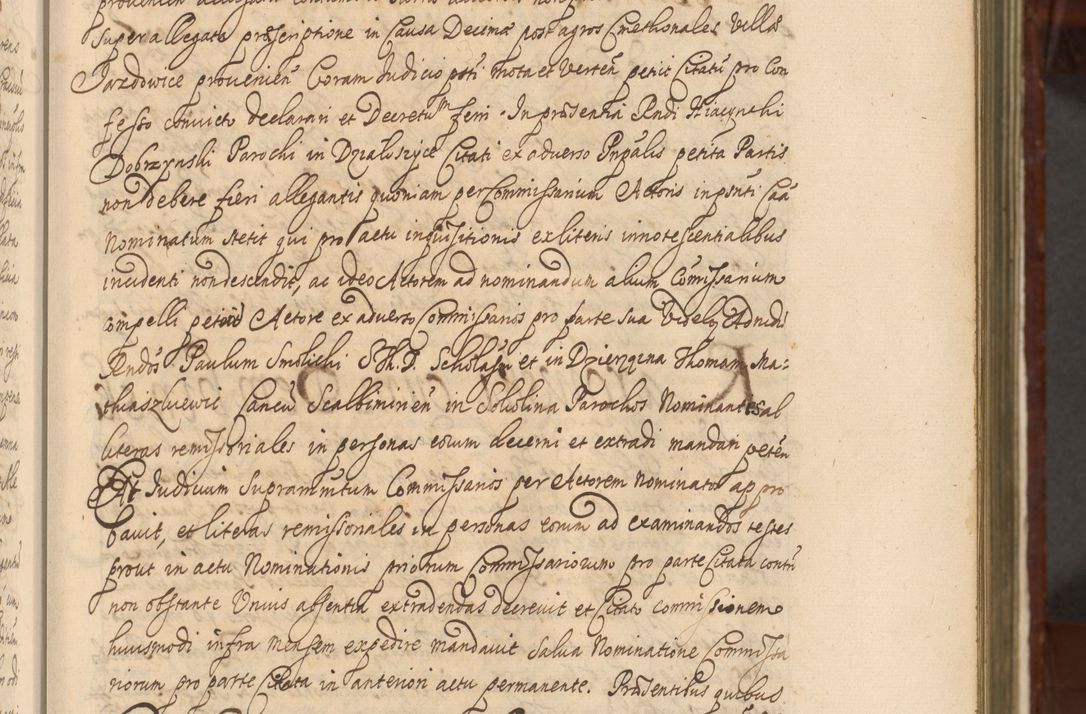 Super allegata præscriptione in Causa Decimæ post agros Cmethonales Villæ
Jazdowice provenien Coram Judicio pnti mota et Verten petiit Citatū pro Con
fesso convicto declarari et Decretū fieri. In præsentia Rndi Hiacynthi
Dobrzynski Parochi in Dzialoszyce Citati ex adverso Pnpalis petita Partis
non debere fieri allegantis quoniam per Commissarium Actoris in pnti Caā
Nominatum stetit qui pro actu inquisitionis ex literis innotescentialibus
incidenti non descendit, ac ideo Actorem ad nominandum alium Comissarium
compelli petiit Actore ex adverso Commissarios pro parte sua Videlz Adm Rndū
Rndos Paulum Smolichi S Th. D. Scholasm et in Dzierzgina Thomam Ma:
thiaszkiewic Cancū Scalbimirien in Scholina Parochos Nominantes al
literas remissoriales in personas eorum decerni et extradi mandari peten
Et Judicium Supramintum Commissarios per Actorem Nominatos appro
bavit, et literas remissoriales in personas eorum ad examinandos testes
prout in actu Nominationis priorum Commissariorum pro parte Citata contri
non obstante Unius absentia extradendas decrevit et Citato commissionem
huiusmodi infra Mensem expedire mandavit Salva Nominatione Commissa
riorum pro parte Citata in anteriori actu permanente. Præsentibus quibus